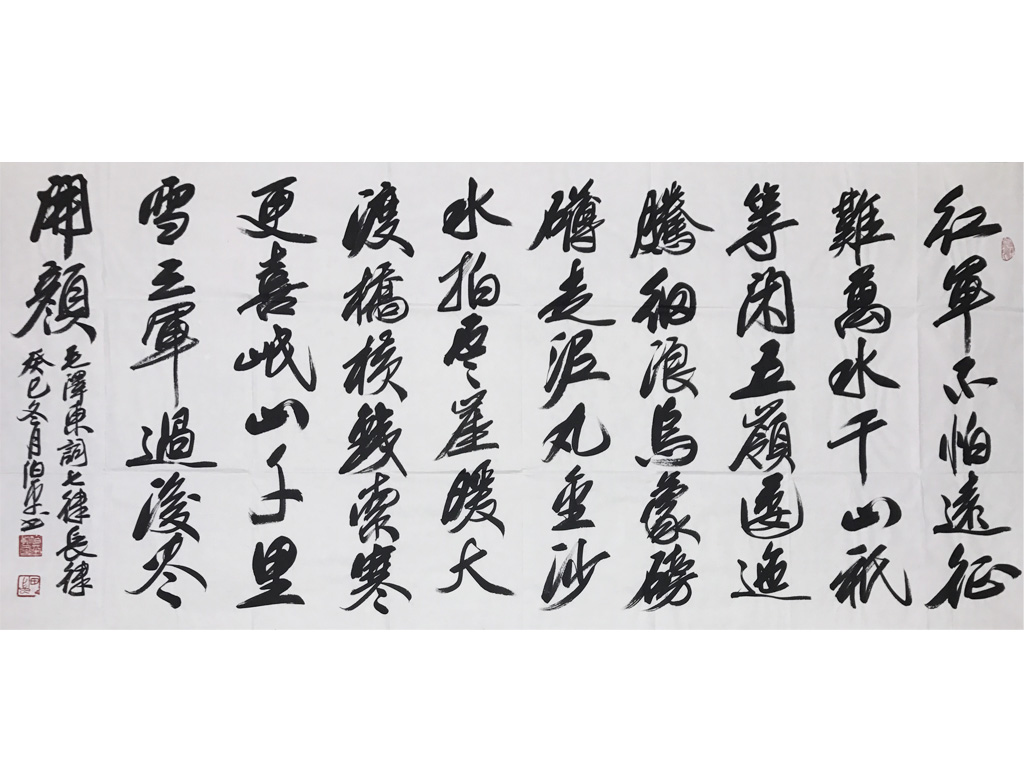 红軍不怕遠征
難萬水千山祇
等閑五嶺逶迤
騰細浪烏蒙磅
礴走泥丸金沙
水拍雲崖暖大
渡橋横鐵索寒
更喜岷山千里
雪三軍過後尽
開顔
毛澤東詞七律長律
癸巳冬月伯